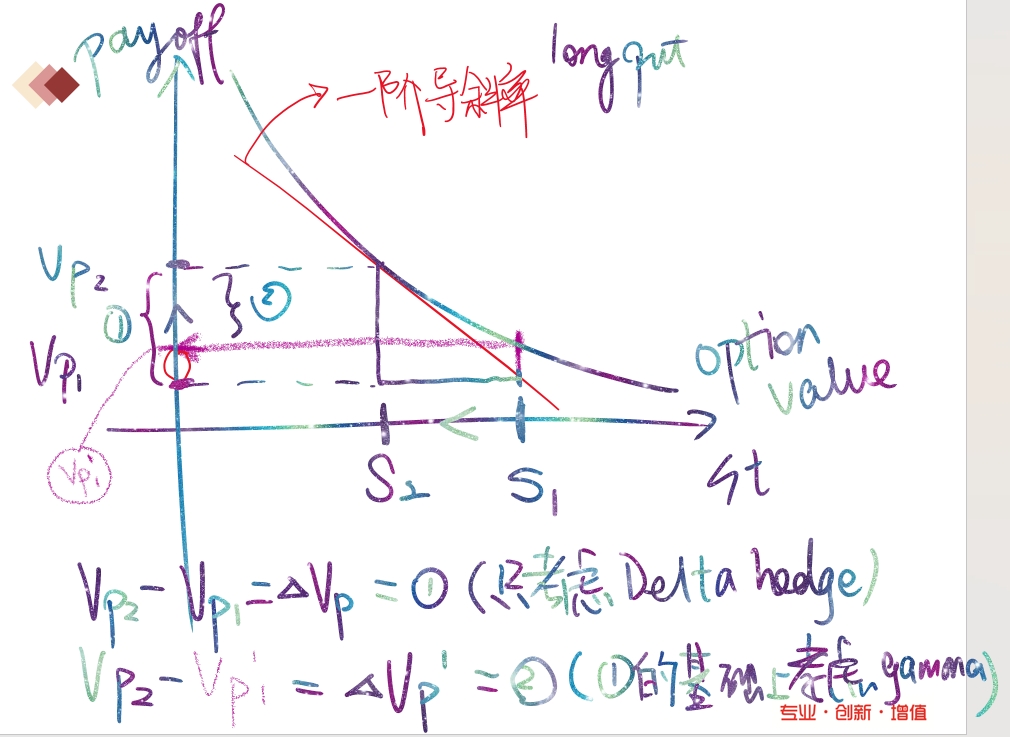 payoff
long put
一阶导斜率
Vp2
①
②
Vp1
option
value
Vp1'
S2
S1
St
Vp2 - Vp1 = △Vp = ① (只考虑 Delta hedge)
Vp2 - Vp1' = △Vp' = ② (①的基础上考虑 gamma)
专业·创新·增值